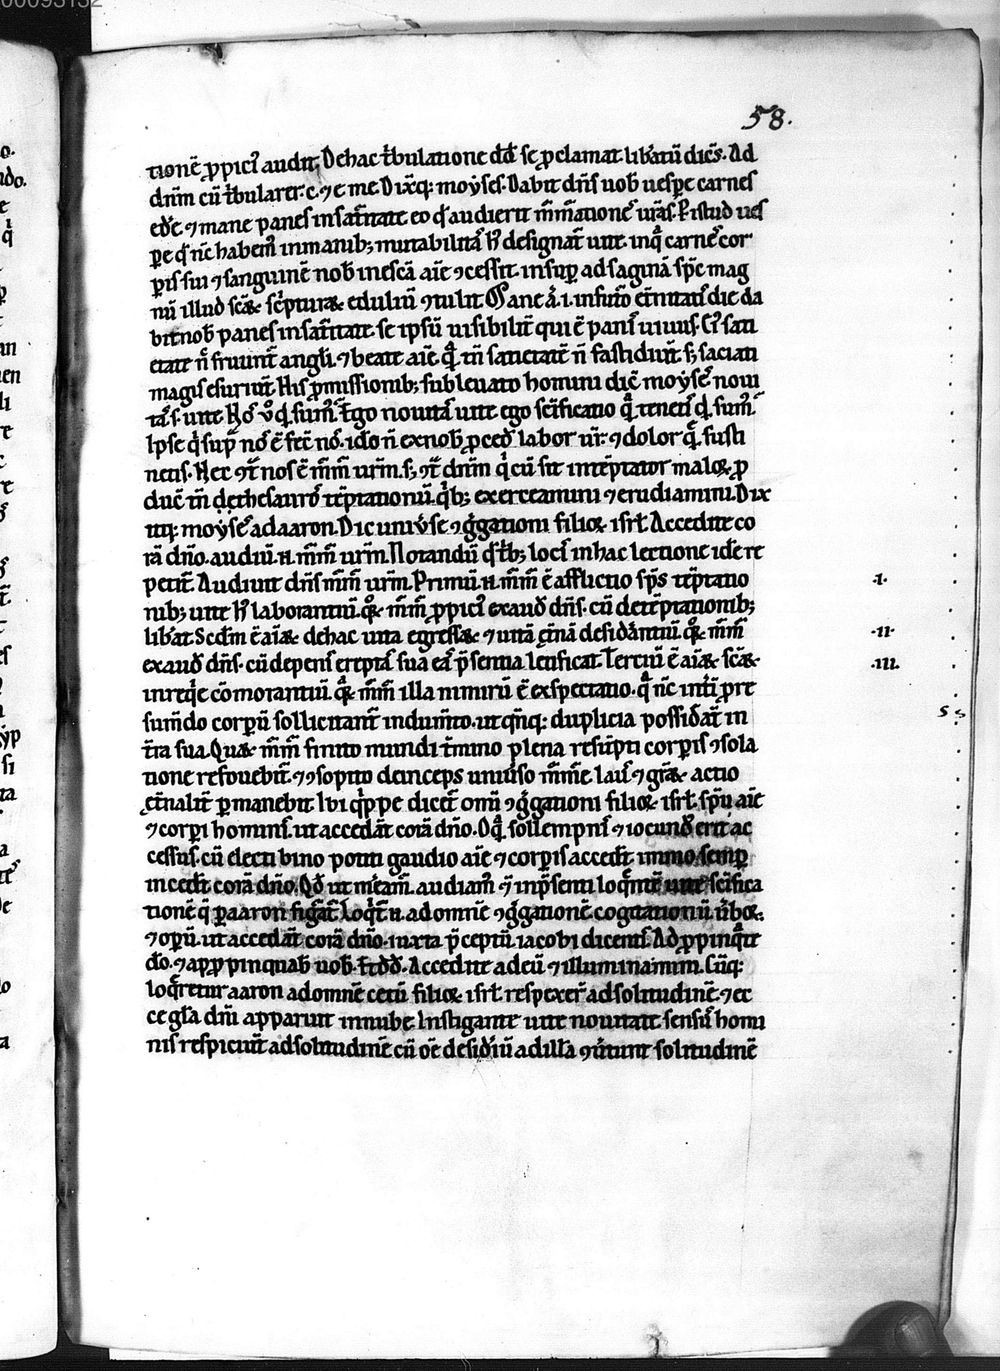 58.
tionē ꝓpici᷒ audit. De hac tͥbulatione dd̄ se ꝓclamat libatū dicēs. Ad
dn̄m cū tͥbularer c. ⁊ ex. me. Dixq; moyses. Dabit dn̄s uob uespe carnes
edē. ⁊ mane panes in sat̄itate eo qd audierit m̄m̄ationē ur̄as. P istud ues
pe q̄ nc̄ habem᷒ in manib; mutabilitā h̄ designat̄ uite. in qͣ carnē cor
poris sui ⁊ sanguinē nob̄ in escā aīe ꝯcessit. insup ad saginā sp̄c mag
nū illud sc̄æ sc̄pturæ eduliū ꝯtulit. Mane ā. i. in futo et̄nitatis die da
bit nob̄ panes in sat̄itate. se ipsū uisibilit̄ qui ē panis uiuus. Cui᷒ sati
etate n̄ fruunt̄ angli. ⁊ beate aīe. qͣ tn̄ sacietatē n̄ fastidiūt. s; saciati
magis esuriūt. His ꝓmissionib; subleuato homini dic̄ moyses noui
tas. uite. Nos u̇ qͥd sum᷒. Ego nouitas uite ego sc̄ificatio qͣ tenetis qd sum᷒
Ipse qͥ supͣ nos ē fec̄ nos. ido n̄ ex nob̄ ꝓced̄ labor ur̄. ⁊ dolor qͣ susti
netis. Nec ꝯtͣ nos ē m̄m̄ ur̄m. s; ꝯtͣ dn̄m qͥ cū sit intēptator maloꝝ ꝓ
ducͥ tn̄ de thesauro tēptationū qͥb; exerceamini ⁊ erudiamini. Dix
itq; moyses ad aaron. Dic uniu̇se ꝯg̊gationi filioꝝ isrl. Accedite co
rā dn̄o. audiū. n. m̄m̄ ur̄m. Notandū qd tͥb; locis in hac lectione idē re
petit̄. Audiuit dn̄s m̄m̄ ur̄m. Primū. n. m̄m̄ ē afflictio sp̄s tēptatio ·I·
nib; uite h᷒ laborantiū. qͦꝝ m̄m̄ ꝓpici᷒ exaud̄ dn̄s. cū de tēptationib;
libat. Scd̄m ē aīæ de hac uita egressæ ⁊ uitā et̄nā desidātiū. qͦꝝ m̄m̄ ·II·
exaud̄ dn̄s. cū de penis ereptas sua eas p̄sentia letificat. Terciū ē aīæ sc̄æ ·III.
in reqͥe cōmorantiū. qͣꝝ m̄m̄ illa nimirū ē exspectatio. qͣ nc̄ int̄i pro re
sum̄do corpū sollicitant̄ indum̄to. ut qn̄q; duplicia possidāt in
t̄ra sua. Quæ m̄m̄ finito mundi t̄mino plena resūpti corpis ꝯsola
tione refouebit̄. ⁊ ꝯsopito deinceps uniu̇so m̄m̄e laus ⁊ grāæ actio
et̄nalit̄ pmanebit. Ibi qͥppe dicet̄ omī ꝯg̊gationi filioꝝ isrl. sp̄ui aīe
⁊ corpi hominis. ut accedāt corā dn̄o. O qͣ sollempnis ⁊ iocund᷒ erit ac
cessus. cū electi bino potiti gaudio aīe ⁊ corpis accedt̄ immo semp
incedt̄ corā dn̄o. Qd̄ ut m̄eam᷒. audiam᷒ ⁊ in p̄senti loqͣm̄te uite sc̄ifica
tionē qͥ p aaron figat̄. Loqt̄. n. ad omnē ꝯg̊gationē cogitationū ūboꝝ.
⁊ opū. ut accedāt corā dn̄o. iuxta p̄ceptū iacobi dicentis. Adꝓpinqͣte
do. ⁊ apꝓpinquab̄ uob. Et dd̄. Accedite ad eū ⁊ illuminamini. Cūq;
loqͣretur aaron ad omnē cetū filioꝝ isrl. respexer̄ ad solitudinē. ⁊ ec
ce gl̄a dn̄i apparuit in nube. Instigante uite nouitate. sensus homi
nis respiciūt ad solitudinē cū oē desidiū ad illā ꝯu̇tunt solitudinē